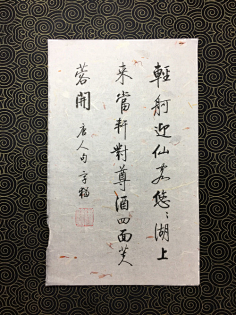 輕舸迎仙客悠〻湖上
來當軒對尊酒四面芙
蓉開 唐人句 字福